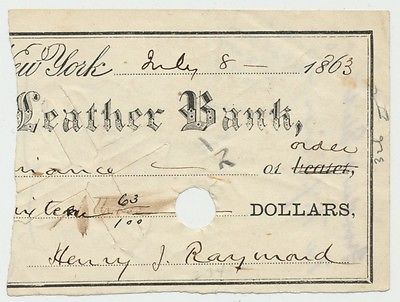 New York July 8 - 1863
Leather Bank,
order
or bearer,
63/100 DOLLARS,
Henry J. Raymond